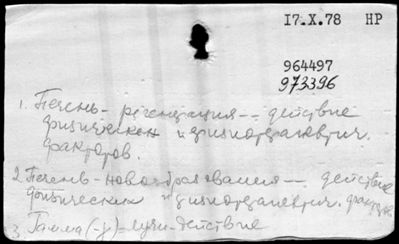 17.X.78 НР
964497
973396
1. Печень - регенерация -- действие
физических и физиотерапевтич.
факторов.
2. Печень - новообразования -- действие
физических и физиотерапевтич. факторов
3. Гамма (-γ) - лучи - действие